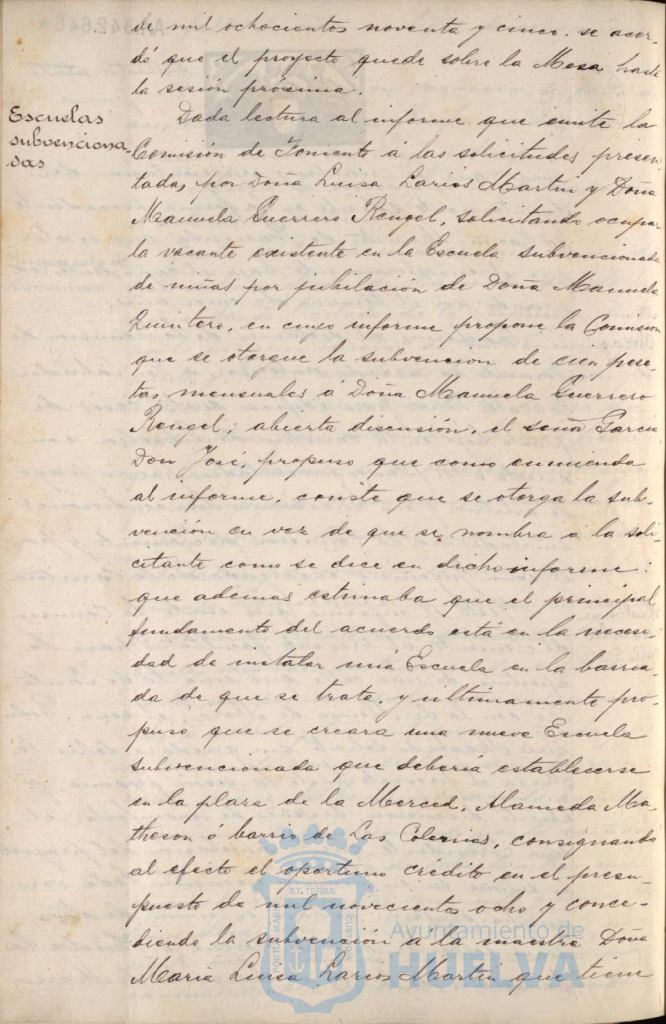 de mil ochocientos noventa y cinco. se acor-
dó que el proyecto quede sobre la Mesa hasta
la sesión próxima.
Escuelas
subvenciona-
das
Dada lectura al informe que emite la
Comisión de Fomento á las solicitudes presen-
tadas por Doña Luisa Larios Martin y Doña
Manuela Guerrero Rengel, solicitando ocupar
la vacante existente en la Escuela subvencionada
de niñas por jubilación de Doña Manuela
Quintero, en cuyo informe propone la Comision
que se otorgue la subvencion de cien pese-
tas mensuales á Doña Manuela Guerrero
Rengel; abierta discusión, el señor Garcia
Don José, propuso que como enmienda
al informe, conste que se otorga la sub-
vención en vez de que se nombra á la soli-
citante como se dice en dicho informe:
que ademas estimaba que el principal
fundamento del acuerdo está en la necesi-
dad de instalar una Escuela en la barria-
da de que se trata, y ultimamente pro-
puso que se creara una nueva Escuela
subvencionada que deberia establecerse
en la plaza de la Merced, Alameda Ma-
theson ó barrio de Las Colonias, consignando
al efecto el oportuno crédito en el presu-
puesto de mil novecientos ocho y conce-
diendo la subvención á la maestra Doña
Maria Luisa Larios Martin que tiene
Ayuntamiento de
HUELVA